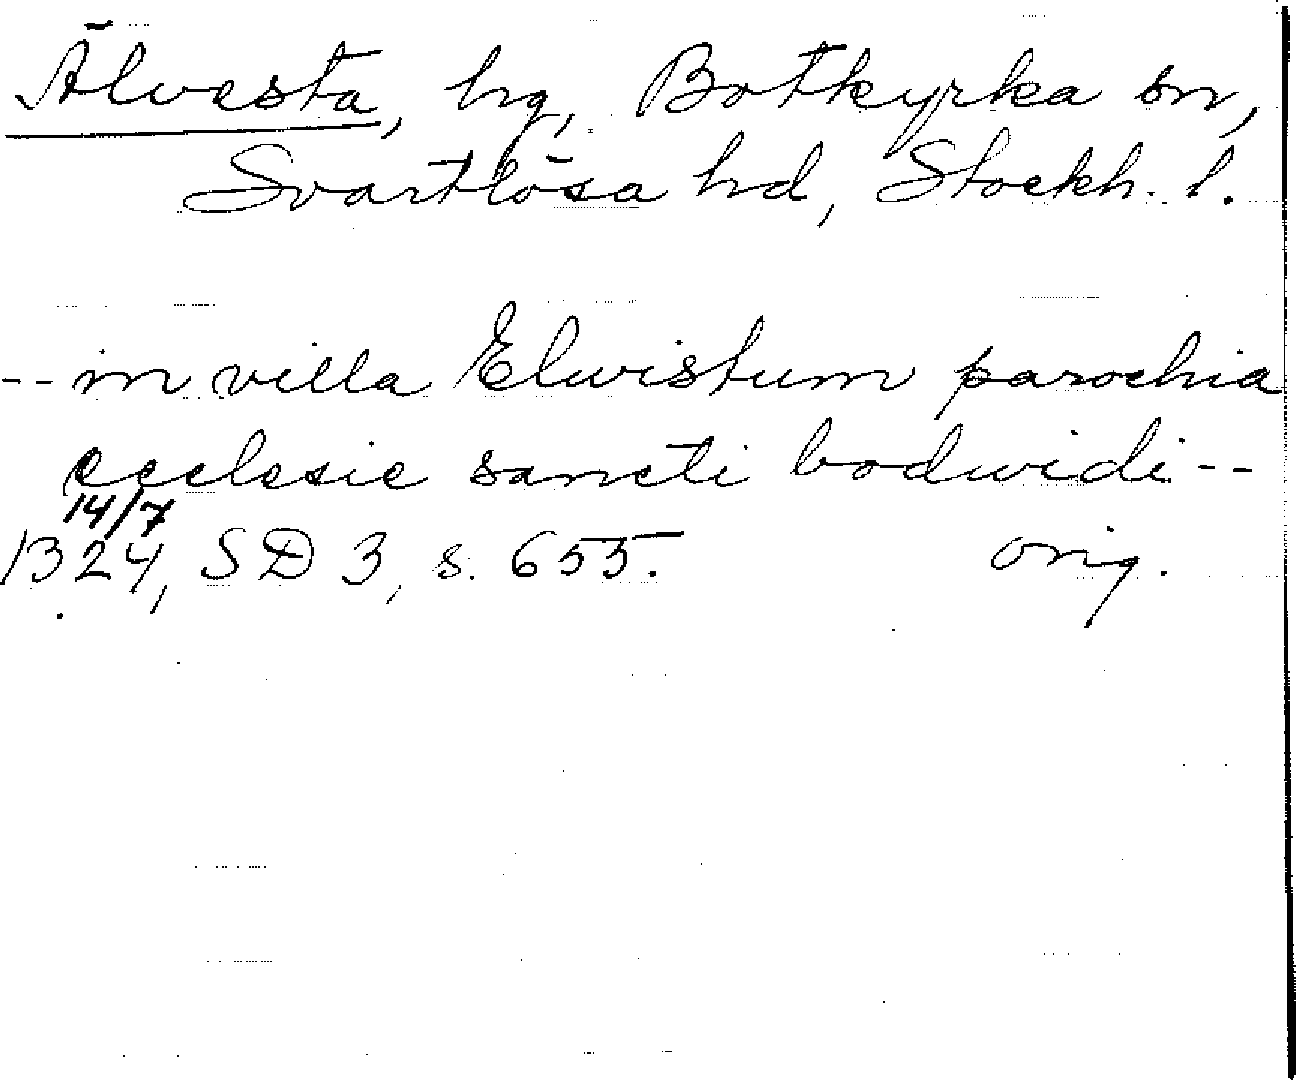 Älvesta, hg, Botkyrka sn,
Svartlösa hd, Stockh. l.
-- in villa Elwistum parochia
ecclesie sancti bodwidi --
14/7
1324, SD 3, s. 655. orig.